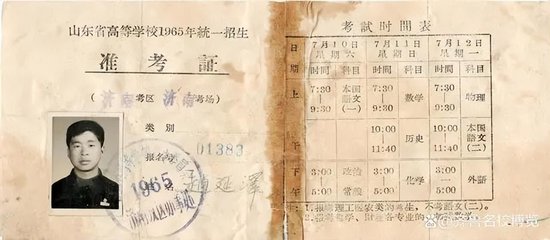 山东省高等学校1965年統一招生
准考証
(济南考区 济南考场)
类别
报名号 01383
1965
趙延澤
考試时間表
日期 7月10日 星期六 7月11日 星期日 7月12日 星期一
时間 科目 时間 科目 时間 科目
上午 7:30 | 9:30 本国語文(一) 7:30 | 9:30 数学 7:30 | 9:30 物理
10:00 | 11:40 历史 10:00 | 11:40 本国語文(二)
下午 3:00 | 5:00 政治常識 3:00 | 5:00 化学 3:00 | 5:00 外語
附注:1.报考理工医农类的考生,不考語文(二)。